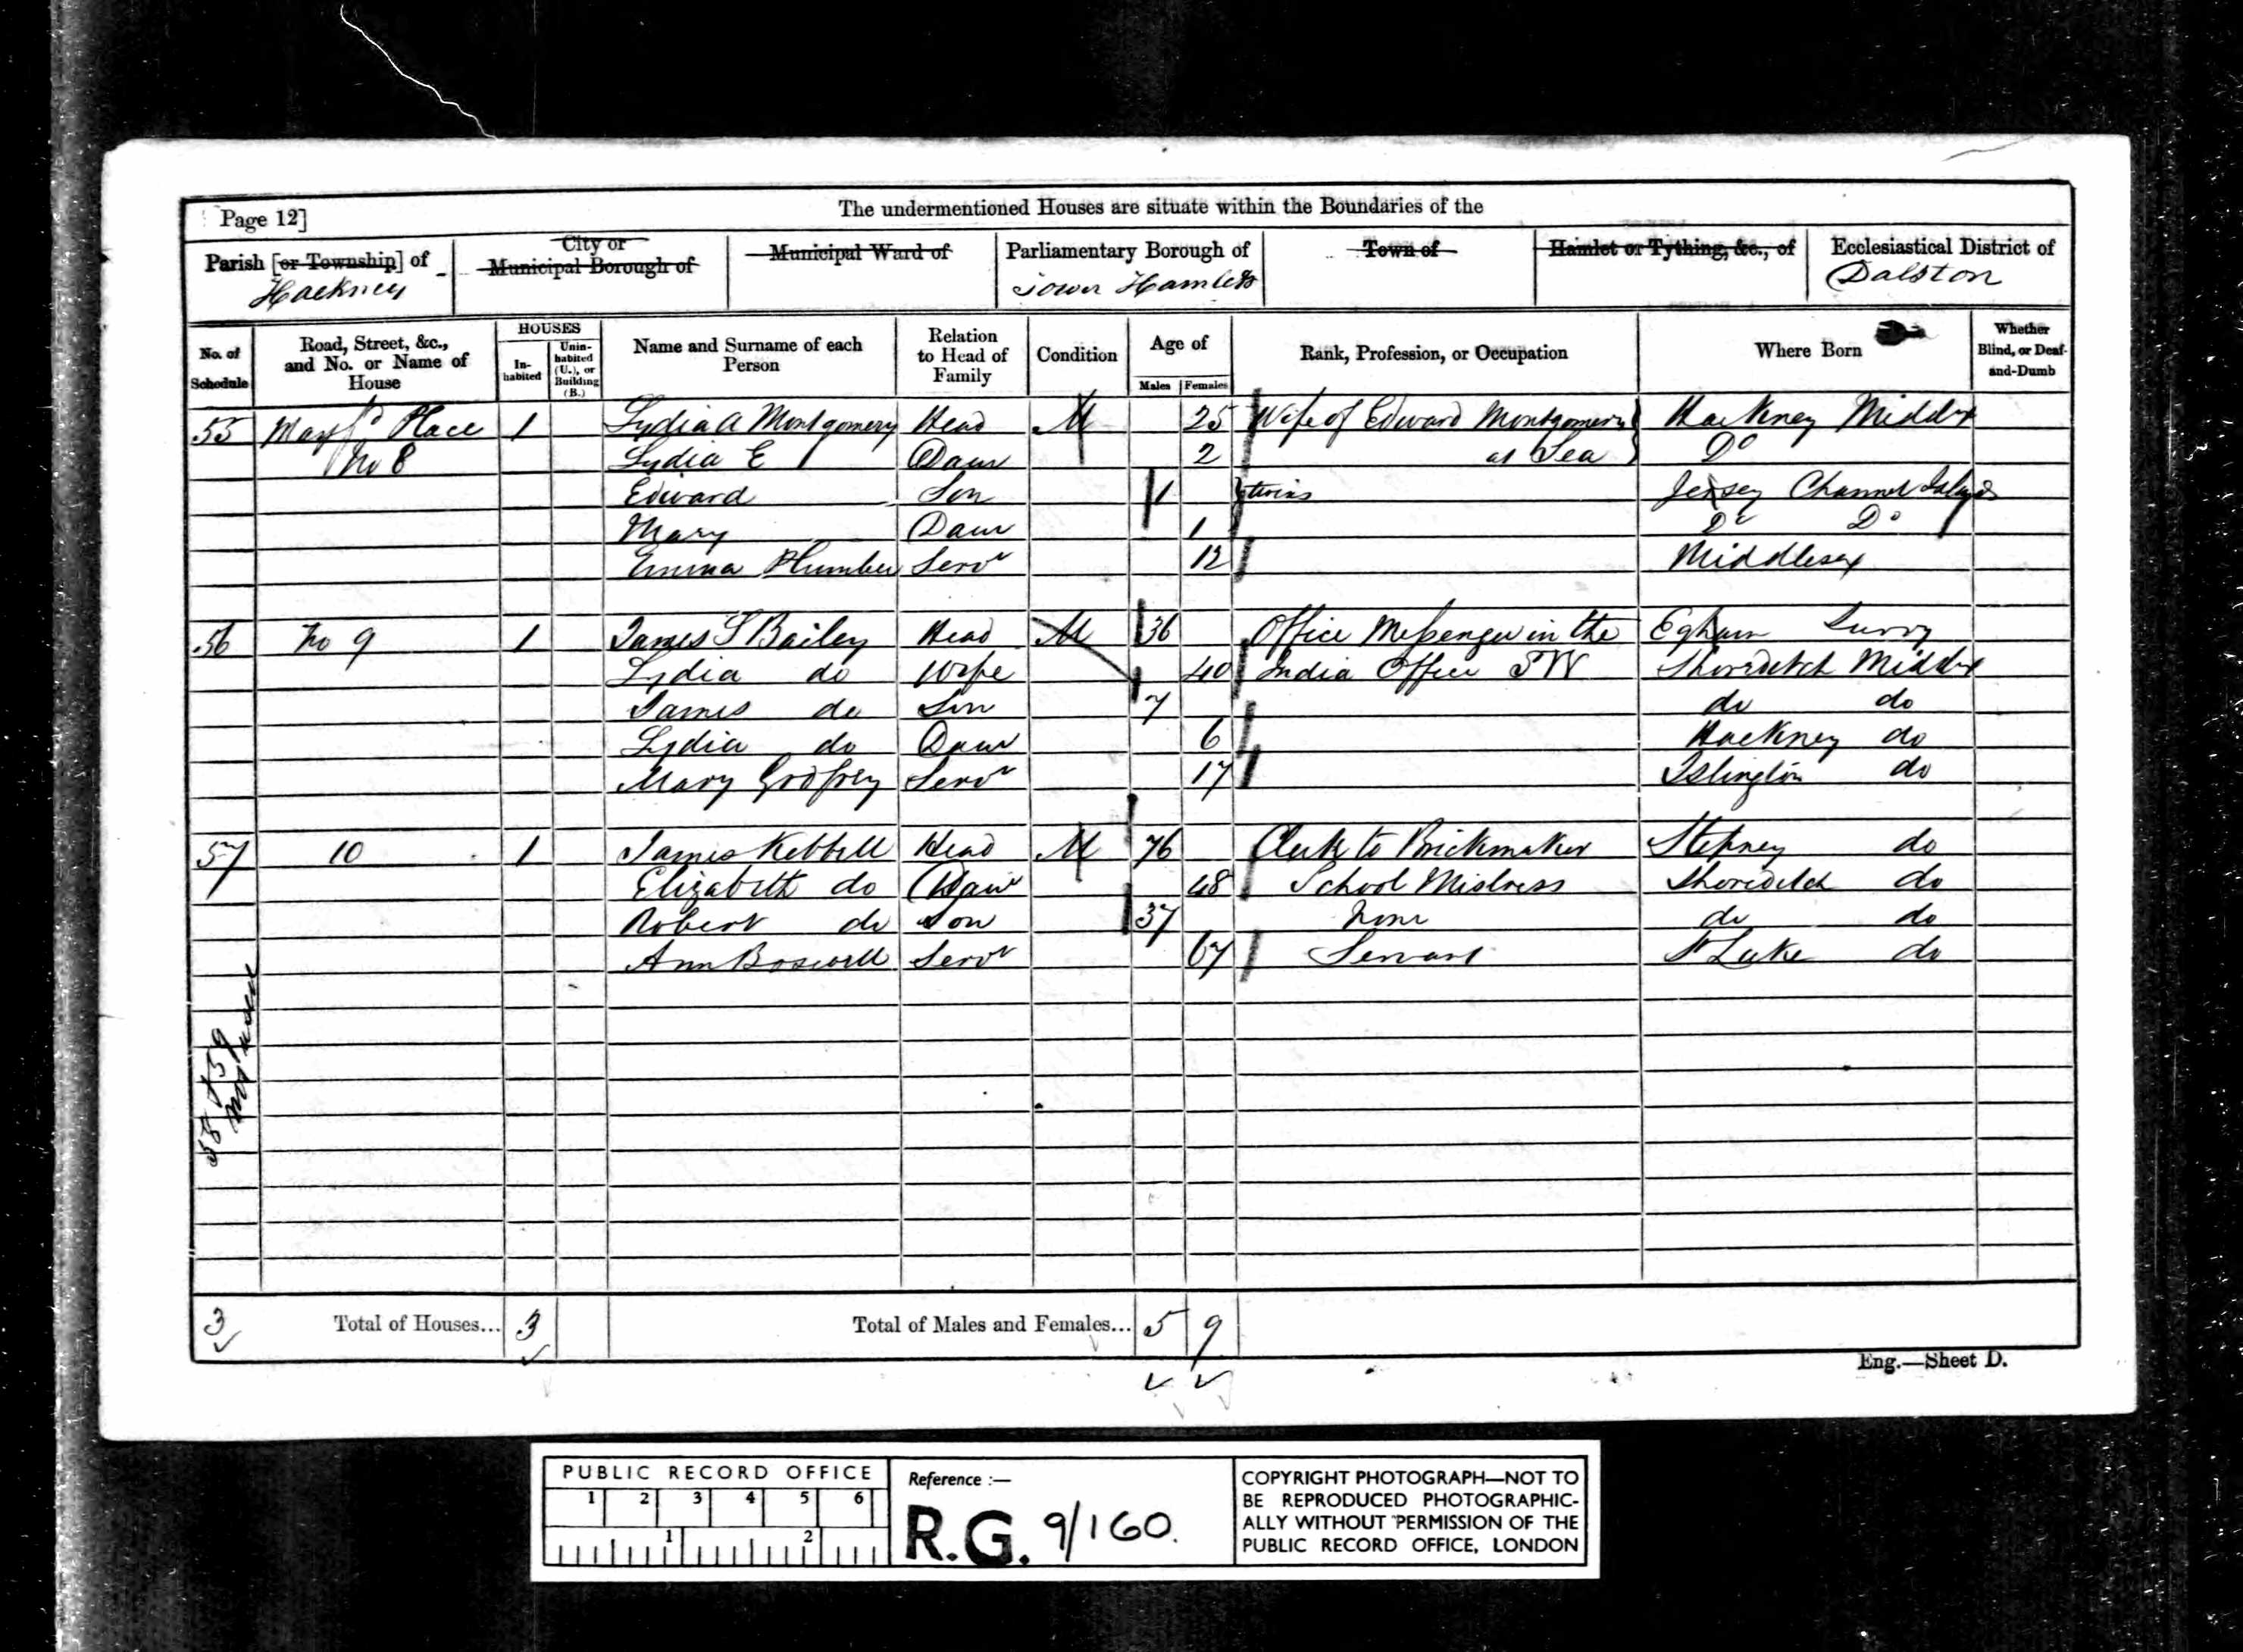 Page 12]
The undermentioned Houses are situate within the Boundaries of the
Parish [or Township] of Hackney
City or Municipal Borough of
Municipal Ward of
Parliamentary Borough of Tower Hamlets
Town of
Hamlet or Tything, &c., of
Ecclesiastical District of Dalston
No. of Schedule
Road, Street, &c., and No. or Name of House
HOUSES
In-habited
Unin-habited (U.), or Building (B.)
Name and Surname of each Person
Relation to Head of Family
Condition
Age of
Males Females
Rank, Profession, or Occupation
Where Born
Whether Blind, or Deaf-and-Dumb
55 Place 1 Lydia A Montgomery Head M 25 Wife of Edward Montgomery Hackney Middx
No 8 Lydia E Daur 2 at Sea Do
Edward Son 1 twins Jersey Channel Islands
Mary Daur 1 Do Do
Emma Plumber Servt 12 Middlesex
56 No 9 1 James S Bailey Head M 36 Office Messenger in the Egham Surry
Lydia do Wife 40 India Office SW Shoreditch Middx
James do Son 7 do do
Lydia do Daur 6 Hackney do
Mary Godfrey Servt 17 Islington do
57 10 1 James Kebbell Head M 76 Clerk to Brickmaker Stepney do
Elizabeth do Daur 48 School Mistress Shoreditch do
Robert do Son 37 None do do
Ann Boswell Servt 67 Servant St Luke do
58 59
3 Total of Houses... 3 Total of Males and Females... 5 9
Eng.—Sheet D.
PUBLIC RECORD OFFICE
1 2 3 4 5 6
1 2
Reference :—
R.G. 9/160.
COPYRIGHT PHOTOGRAPH—NOT TO
BE REPRODUCED PHOTOGRAPHIC-
ALLY WITHOUT PERMISSION OF THE
PUBLIC RECORD OFFICE, LONDON